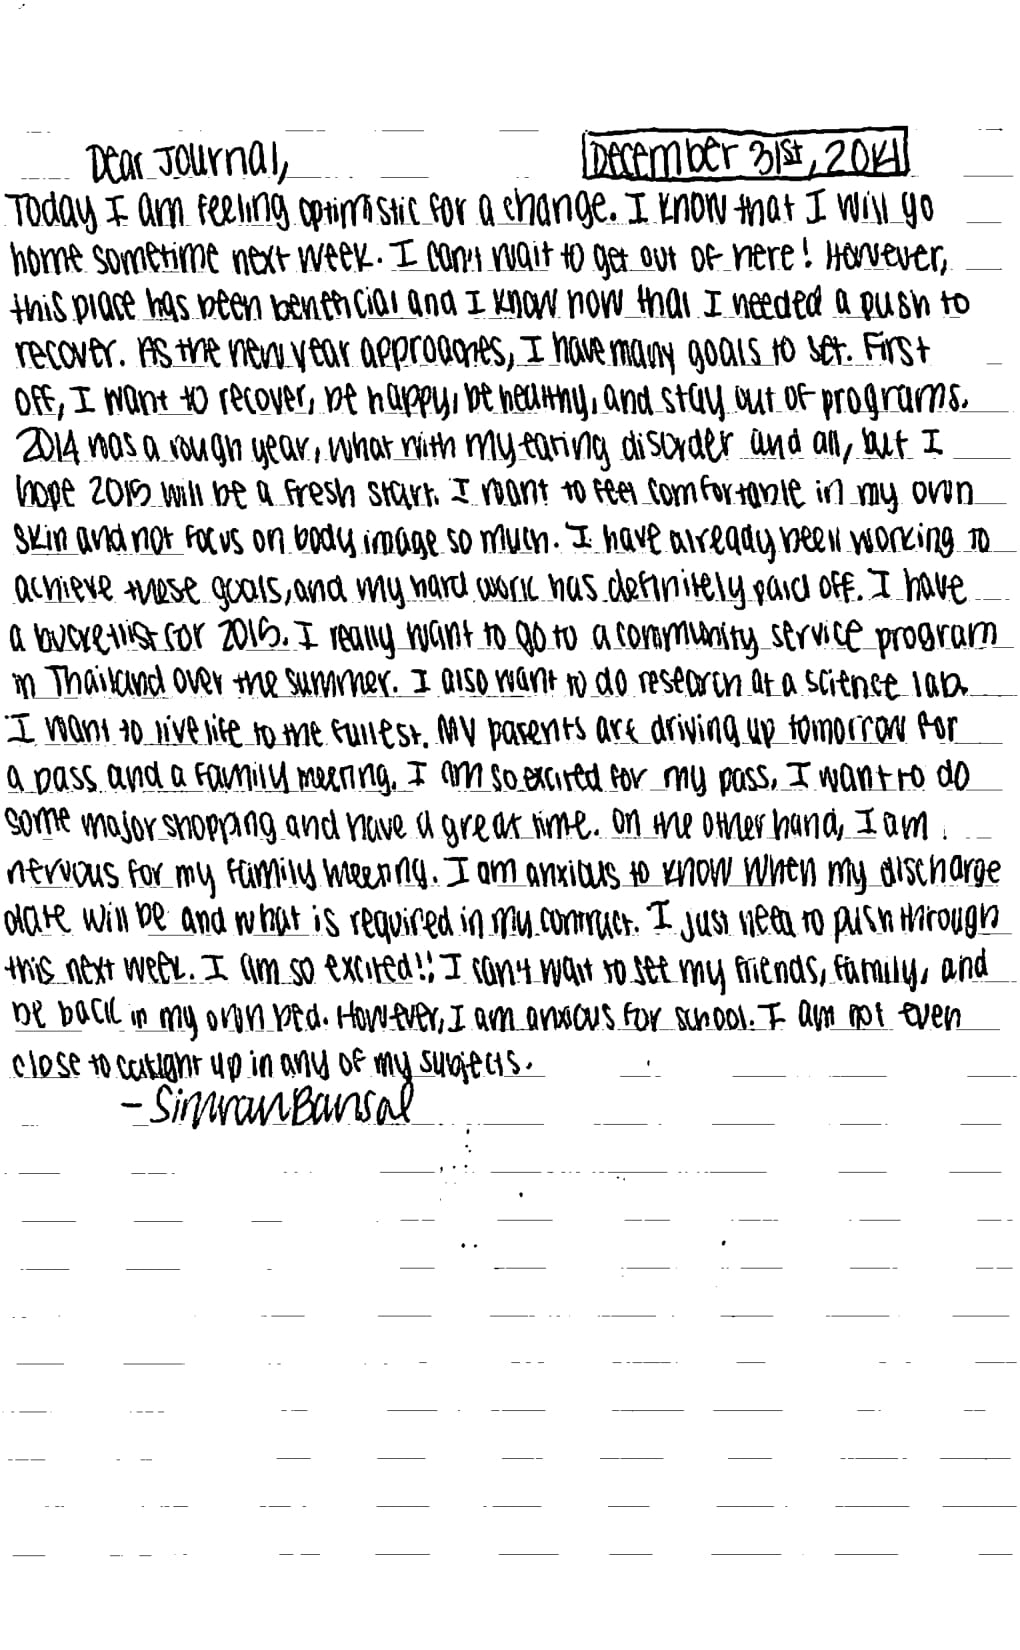 Dear Journal, December 31st, 2014
Today I am feeling optimistic for a change. I know that I will go
home sometime next week. I can't wait to get out of here! However,
this place has been beneficial and I know now that I needed a push to
recover. As the new year approaches, I have many goals to set. First
off, I want to recover, be happy, be healthy, and stay out of programs.
2014 was a rough year, what with my eating disorder and all, but I
hope 2015 will be a fresh start. I want to feel comfortable in my own
skin and not focus on body image so much. I have already been working to
achieve these goals, and my hard work has definitely paid off. I have
a bucketlist for 2015. I really want to go to a community service program
in Thailand over the summer. I also want to do research at a science lab.
I want to live life to the fullest. My parents are driving up tomorrow for
a pass and a family meeting. I am so excited for my pass. I want to do
some major shopping and have a great time. On the other hand, I am
nervous for my family meeting. I am anxious to know when my discharge
date will be and what is required in my contract. I just need to push through
this next week. I am so excited!! I can't wait to see my friends, family, and
be back in my own bed. However, I am anxious for school. I am not even
close to caught up in any of my subjects.
- Simran Bansal